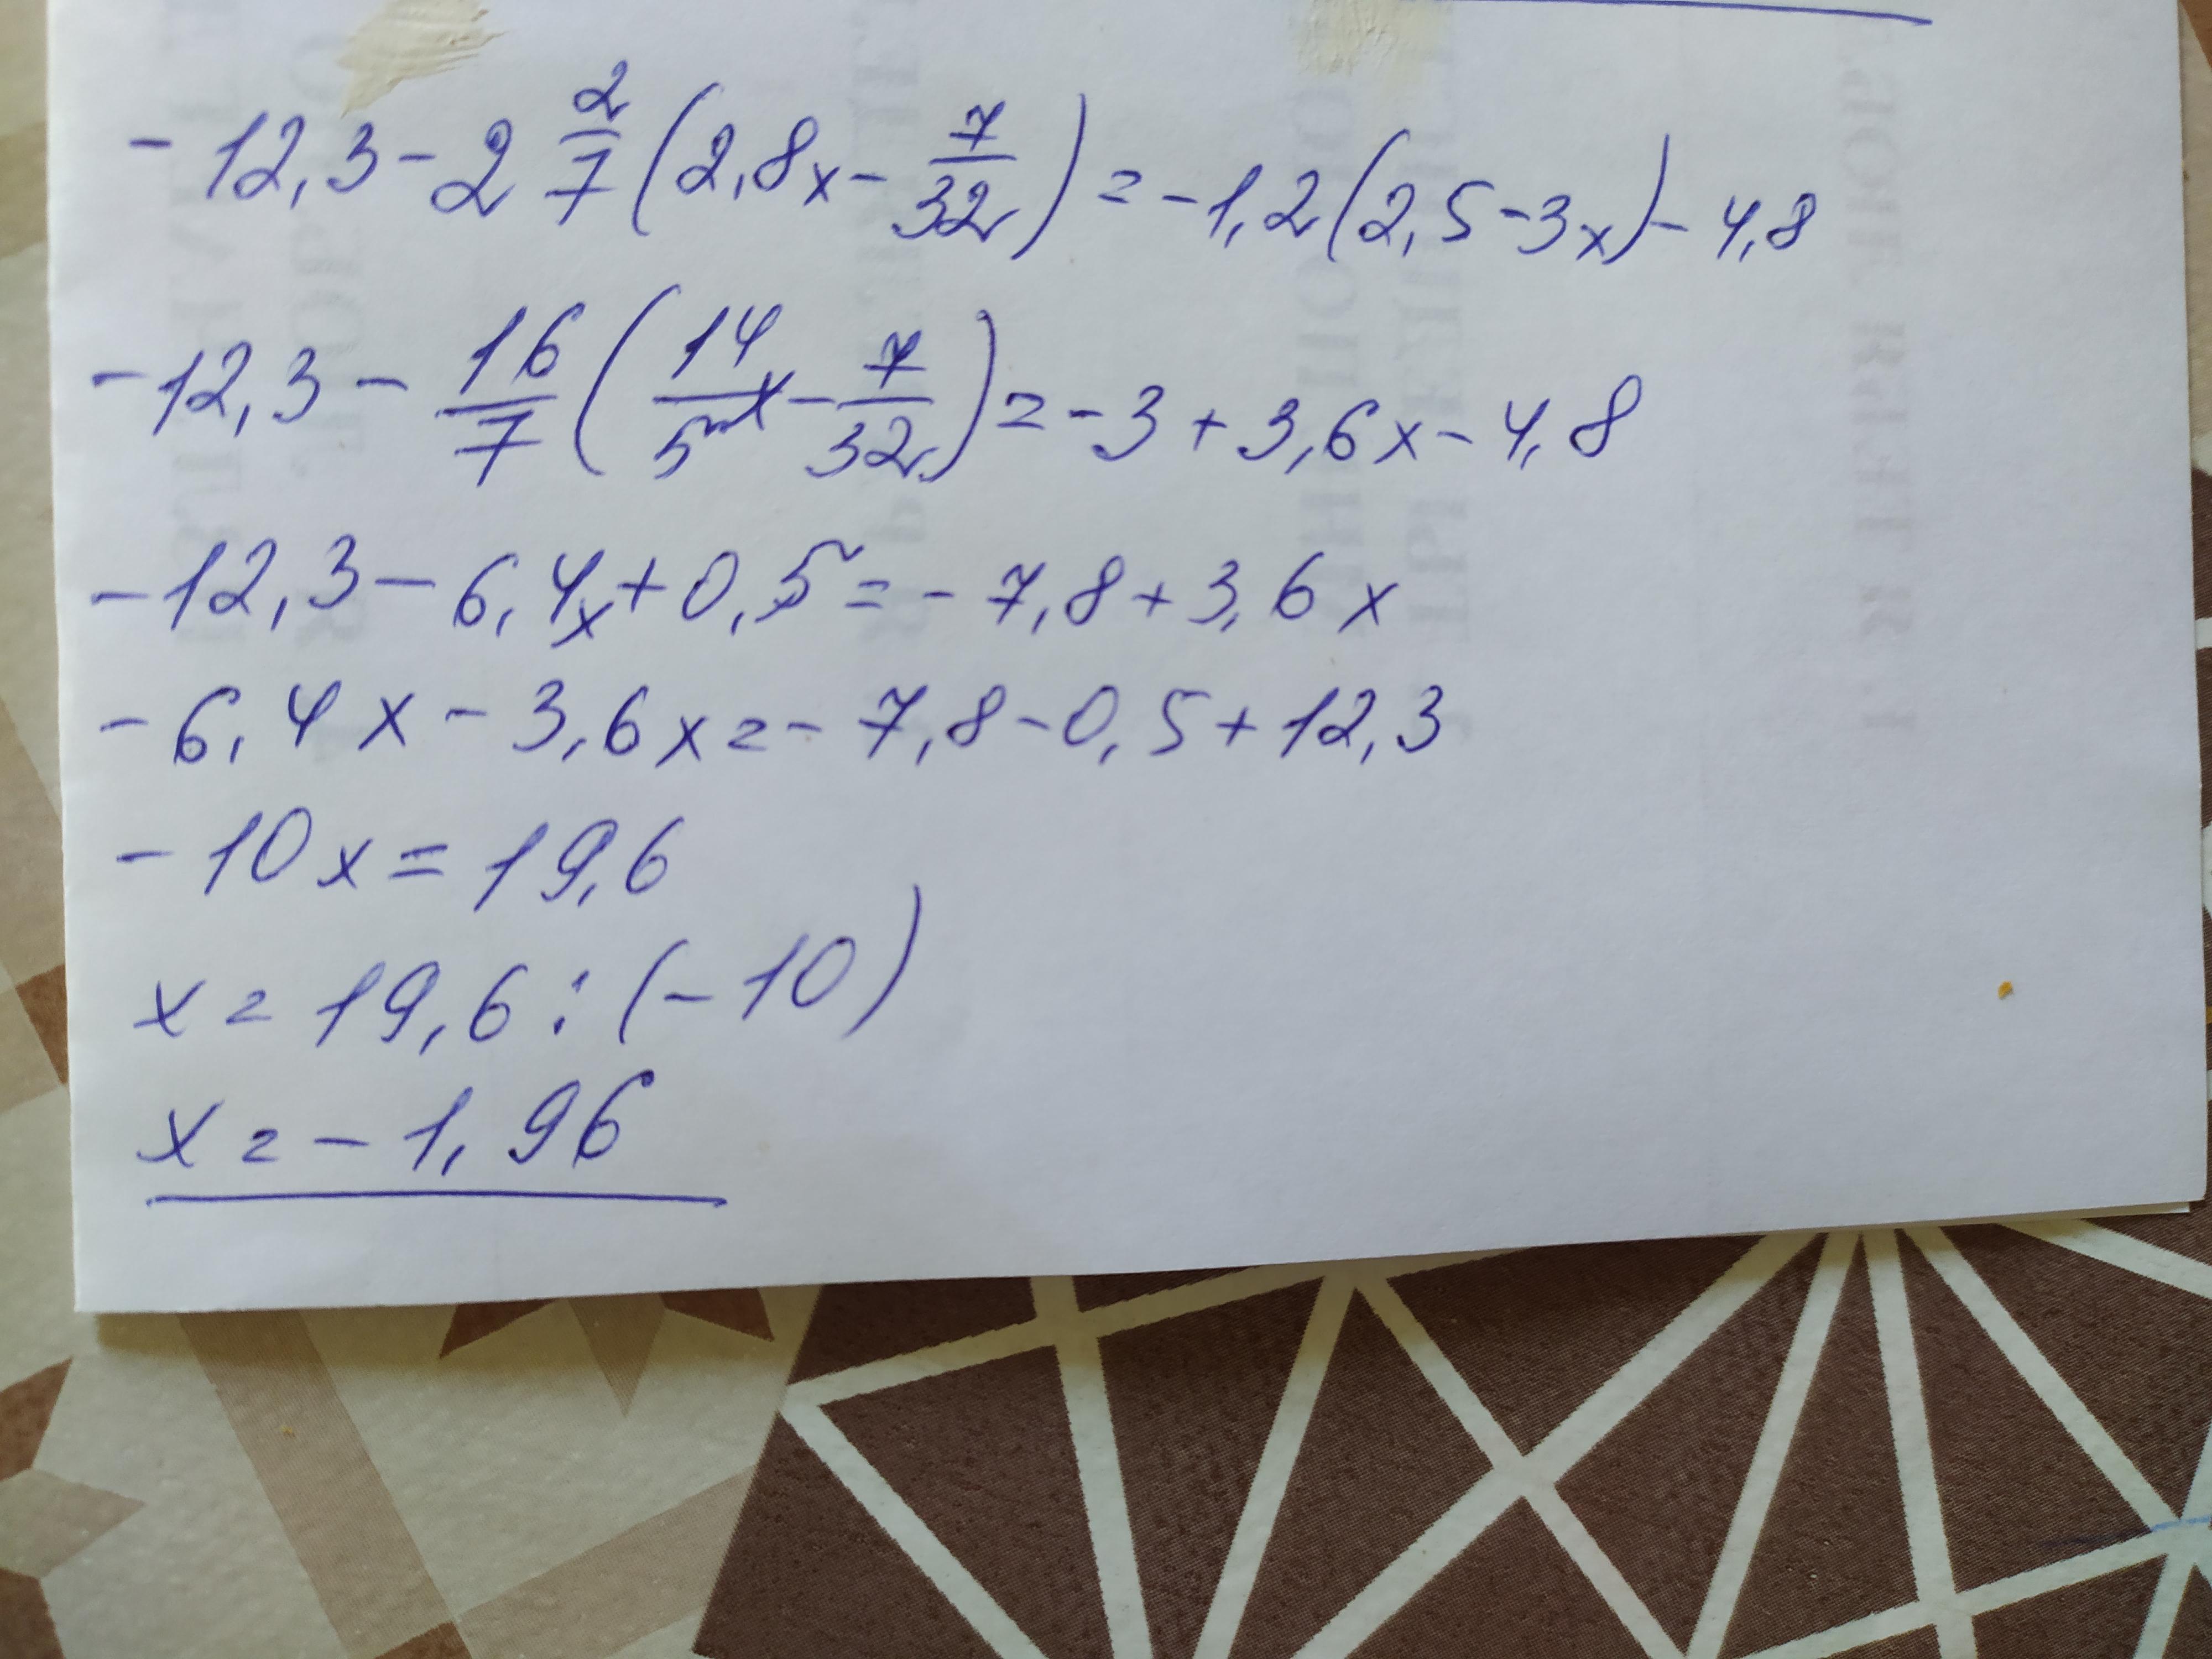 -12,3-2 2/7(2,8x-7/32)=-1,2(2,5-3x)-4,8
-12,3-16/7(14/5x-7/32)=-3+3,6x-4,8
-12,3-6,4x+0,5=-7,8+3,6x
-6,4x-3,6x=-7,8-0,5+12,3
-10x=19,6
x=19,6:(-10)
x=-1,96